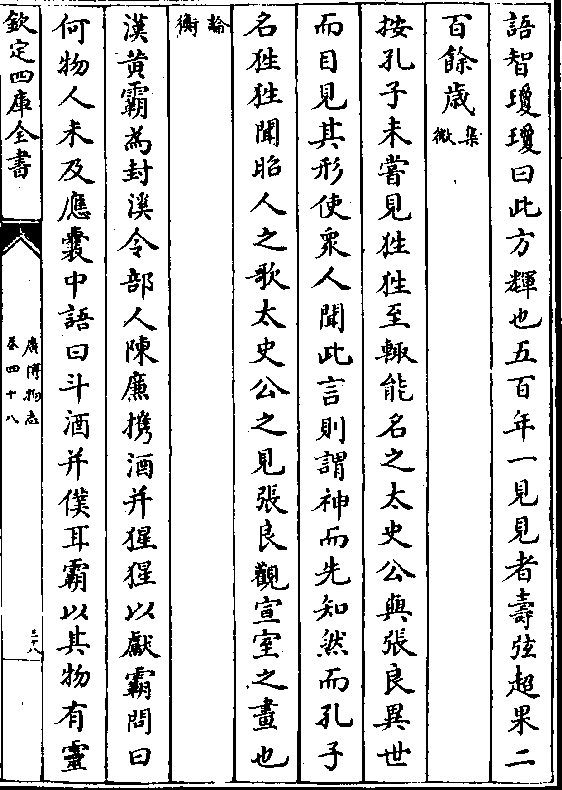 語智瓊瓊曰此方輝也五百年一見見者壽弦超果二
百餘歲集微
按孔子未嘗見狌狌至輙能名之太史公與張良異世
而目見其形使衆人聞此言則謂神而先知然而孔子
名狌狌聞昭人之歌太史公之見張良觀宣室之畫也
論衡
漢黄霸為封溪令部人陳廉携酒并猩猩以獻霸問曰
何物人未及應囊中語曰斗酒并僕耳霸以其物有靈
欽定四庫全書
廣博物志
卷四十八
三十八